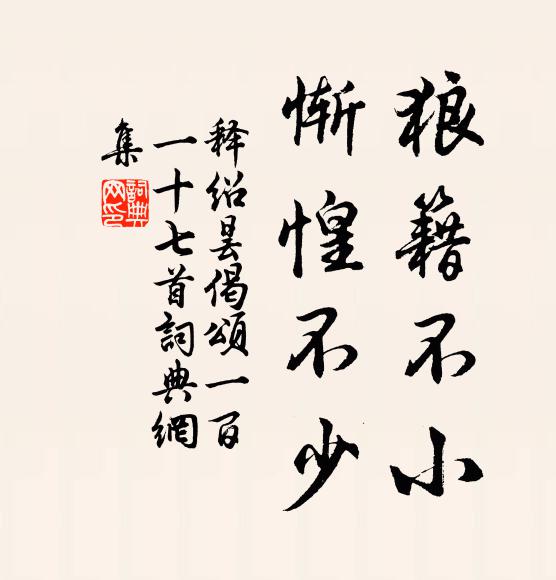 狼籍不小
惭惶不少
释绍昙偈颂一百
一十七首詞典網
集
詞典
网印